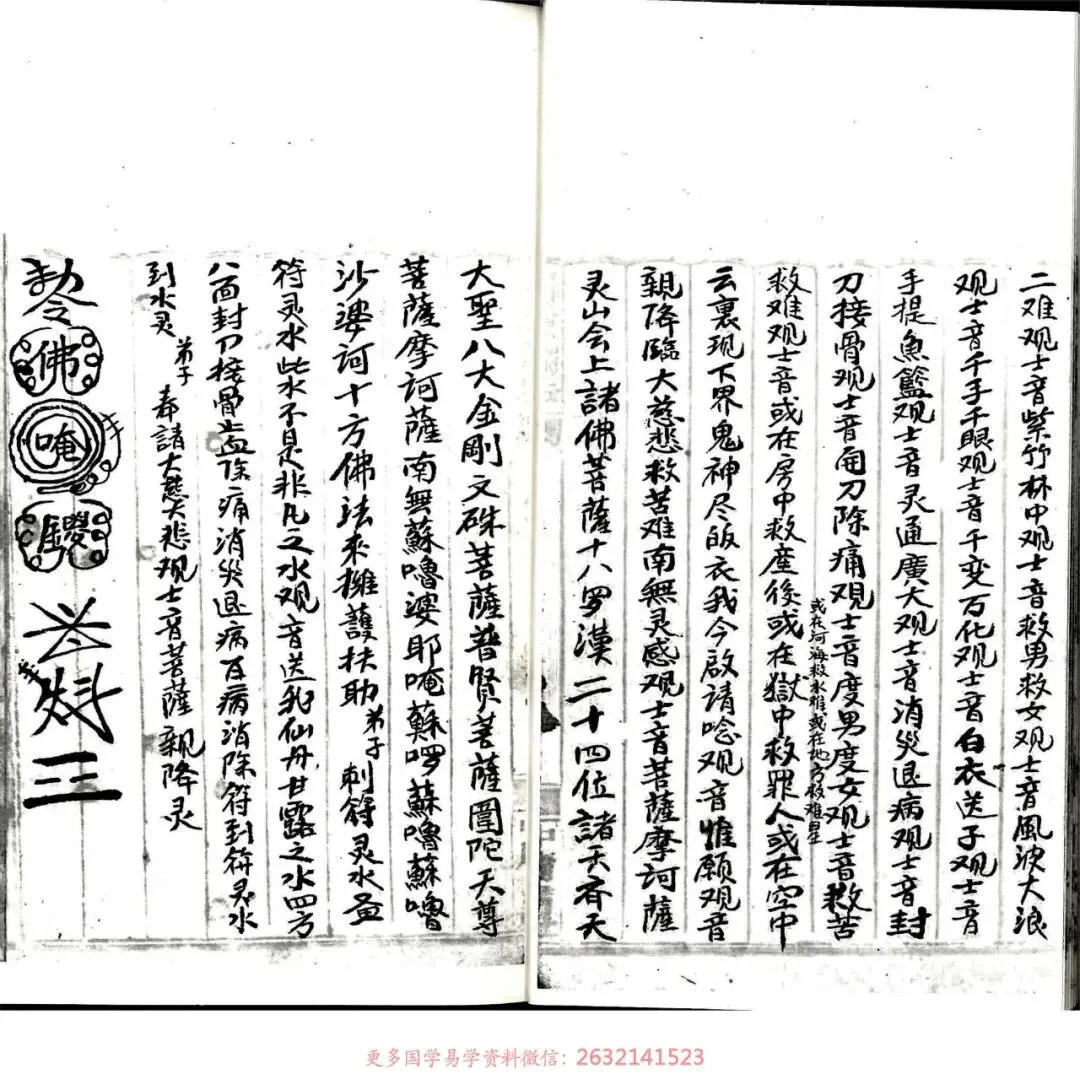 二难观士音紫竹林中观士音救男救女观士音風波大浪
观士音千手千眼观士音千变万化观士音白衣送子观士音
手提魚籃观士音灵通廣大观士音消災退病观士音封
刀接骨观士音 刀除痛观士音度男度女观士音救苦
或在河海救水难或在地方救难星
救难观士音或在房中救產後或在獄中救罪人或在空中
云裏现下界鬼神尽皈衣我今啟請唸观音惟願观音
親降臨大慈悲救苦难南無灵感观士音菩薩摩诃薩
灵山会上諸佛菩薩十八罗漢二十四位諸天斉天
大聖八大金剛文殊菩薩普贤菩薩圍陀天尊
菩薩摩诃薩南無蘇嚕婆耶唵蘇啰蘇嚕蘇嚕
沙婆诃十方佛法来擁護扶助弟子刺符灵水
符灵水此水不是非凡之水观音送我仙丹甘露之水四方
八面封刀接骨止 除痛消災退病百病消除符到符灵水
到水灵弟子奉請大慈大悲观士音菩薩親降灵
勅令佛唵